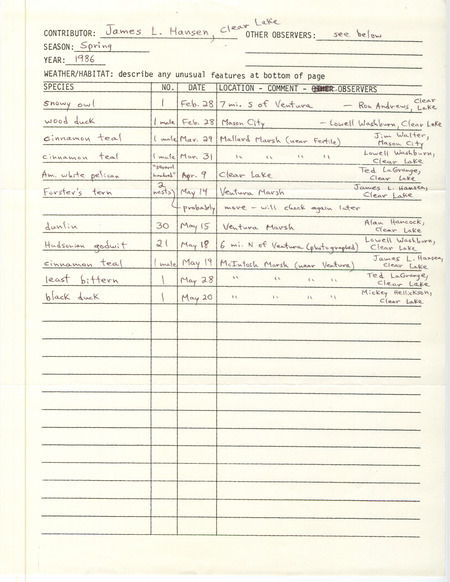 CONTRIBUTOR: James L. Hansen, Clear Lake OTHER OBSERVERS: see below
SEASON: Spring
YEAR: 1986
WEATHER/HABITAT: describe any unusual features at bottom of page
SPECIES NO. DATE LOCATION - COMMENT - OBSERVERS
snowy owl 1 Feb. 28 7 mi. S of Ventura — Ron Andrews, Clear Lake
wood duck 1 male Feb. 28 Mason City - Lowell Washburn, Clear Lake
cinnamon teal 1 male Mar. 29 Mallard Marsh (near Fertile) Jim Walter, Mason City
cinnamon teal 1 male Mar. 31 " " " " Lowell Washburn, Clear Lake
Am. white pelican "several hundred" Apr. 9 Clear Lake Ted LaGrange, Clear Lake
Forster's tern 2 nests) May 14 Ventura Marsh James L. Hansen, Clear Lake
probably more - will check again later
dunlin 30 May 15 Ventura Marsh Alan Hancock, Clear Lake
Hudsonian godwit 21 May 18 6 mi. N of Ventura (photographed) Lowell Washburn, Clear Lake
cinnamon teal 1 male May 19 McIntosh Marsh (near Ventura) James L. Hansen, Clear Lake
least bittern 1 May 28 " " " " Ted LaGrange, Clear Lake
black duck 1 May 20 " " " " Mickey Hellickson, Clear Lake